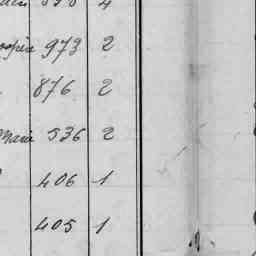 973 2
876 2
Marie 536 2
406 1
405 1